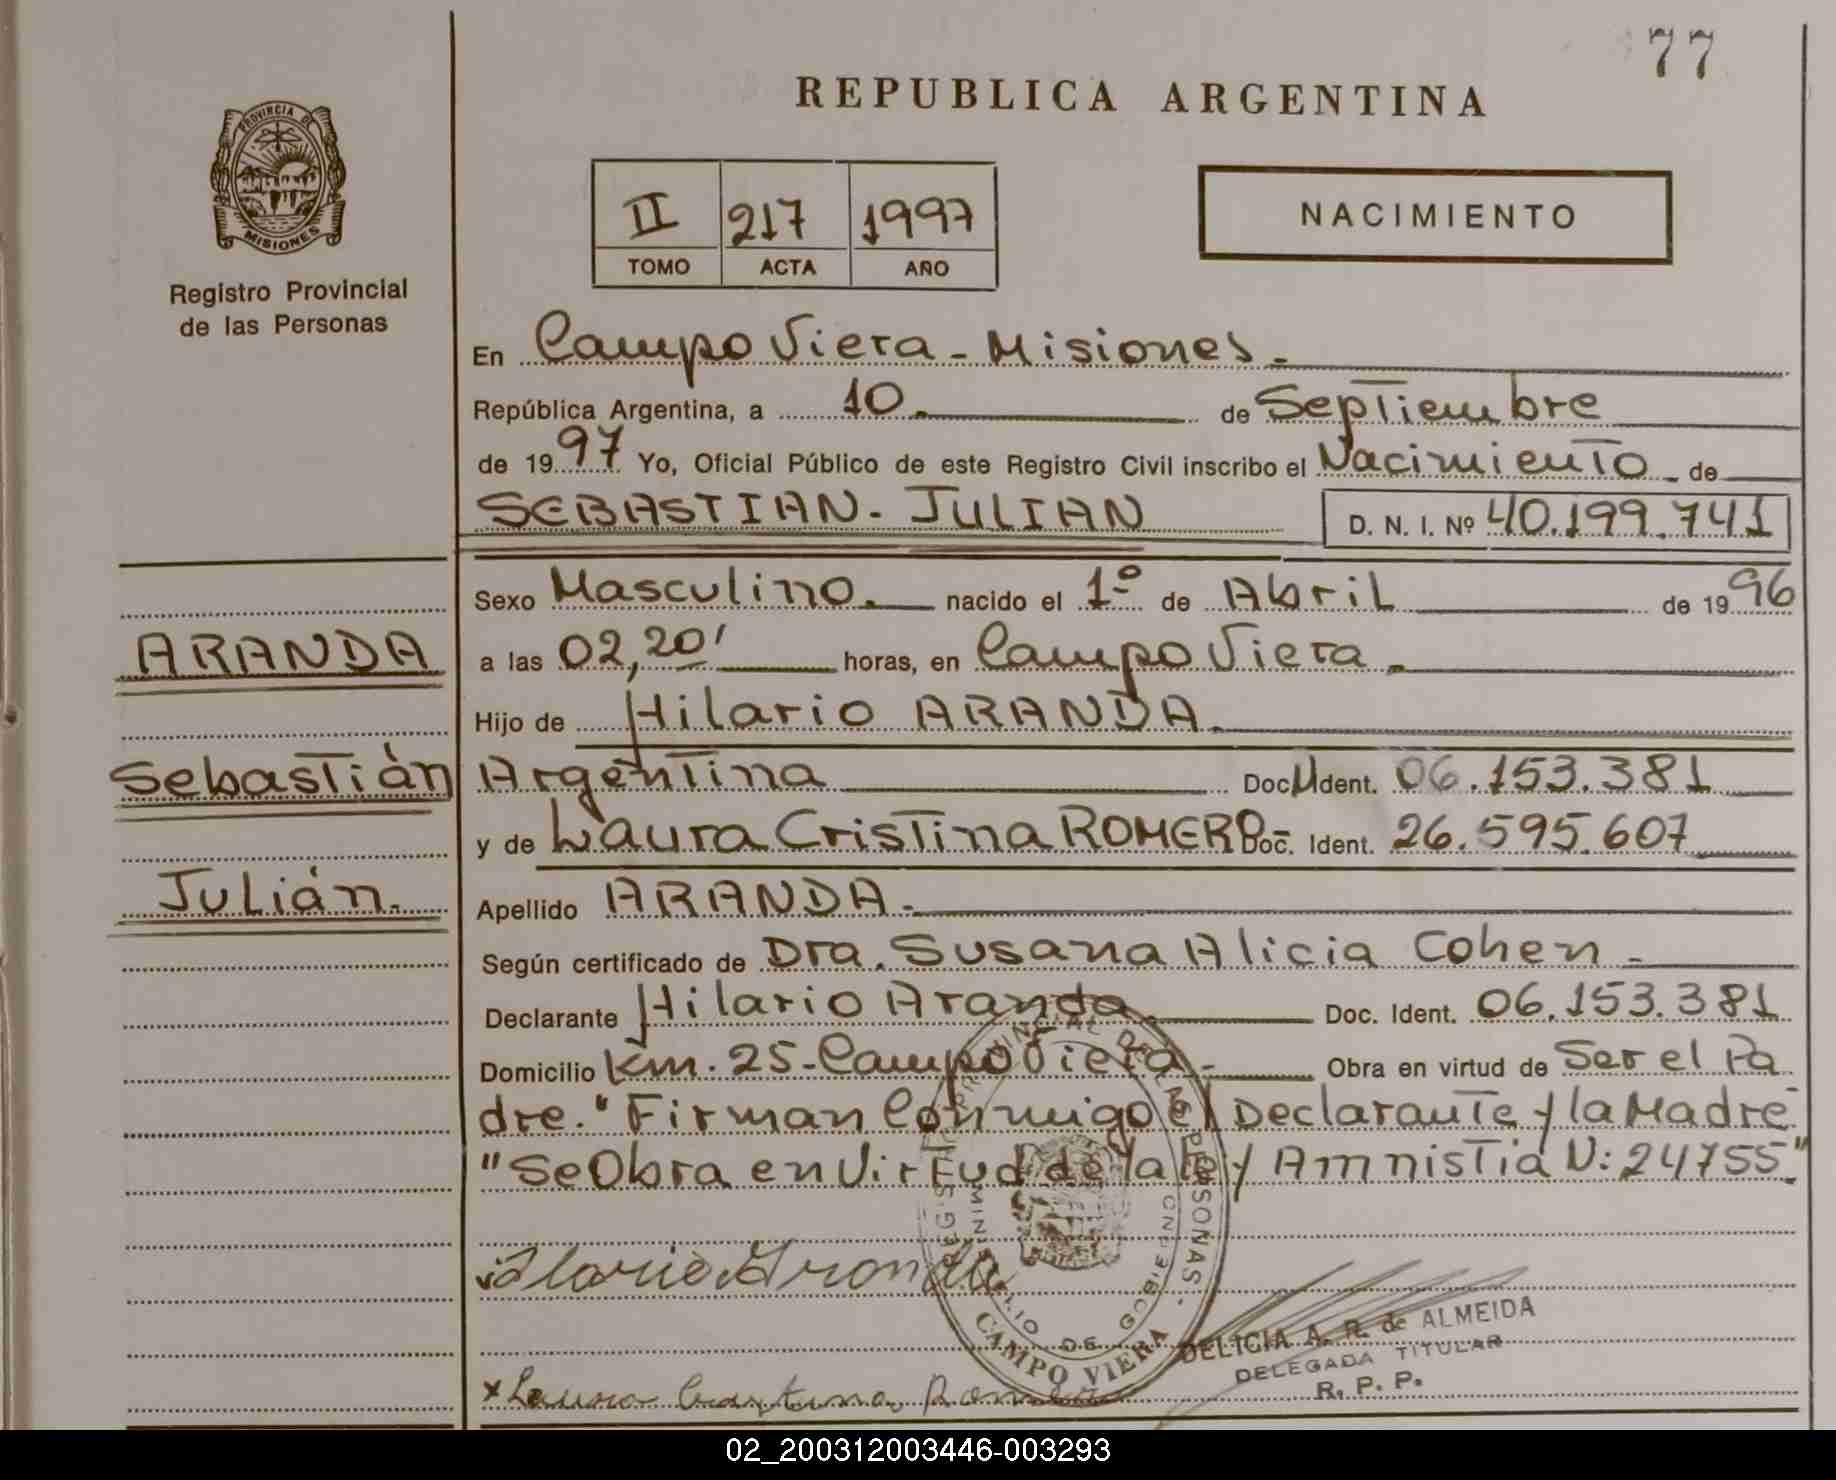 77
REPUBLICA ARGENTINA
PROVINCIA DE
MISIONES
Registro Provincial
de las Personas
II 217 1997
TOMO ACTA AÑO
NACIMIENTO
En Campo Viera - Misiones.-
República Argentina, a 10. de Septiembre
de 1997 Yo, Oficial Público de este Registro Civil inscribo el Nacimiento de
SEBASTIAN. JULIAN D. N. I. Nº 40.199.741
Sexo Masculino. nacido el 1º de Abril de 1996
ARANDA
a las 02,20' horas, en Campo Viera.
Hijo de Hilario ARANDA.
Sebastián
Argentina Doc. M Ident. 06.153.381
y de Laura Cristina ROMERO.- Doc. Ident. 26.595.607
Julián.
Apellido ARANDA.-
Según certificado de Dra. Susana Alicia Cohen -
Declarante Hilario Aranda. Doc. Ident. 06.153.381
Domicilio Km. 25-Campo Viera - Obra en virtud de Ser el Pa
dre." Firman Conmigo el Declarante y la Madre-
"Se Obra en Virtud de la Ley Amnistia N: 24755."
REGISTRO PROVINCIAL DE LAS PERSONAS
MINISTERIO DE GOBIERNO
CAMPO VIERA
Ilario Aranda
DELICIA A. R. de ALMEIDA
DELEGADA TITULAR
R. P. P.
x Laura Cristina Romero
02_200312003446-003293